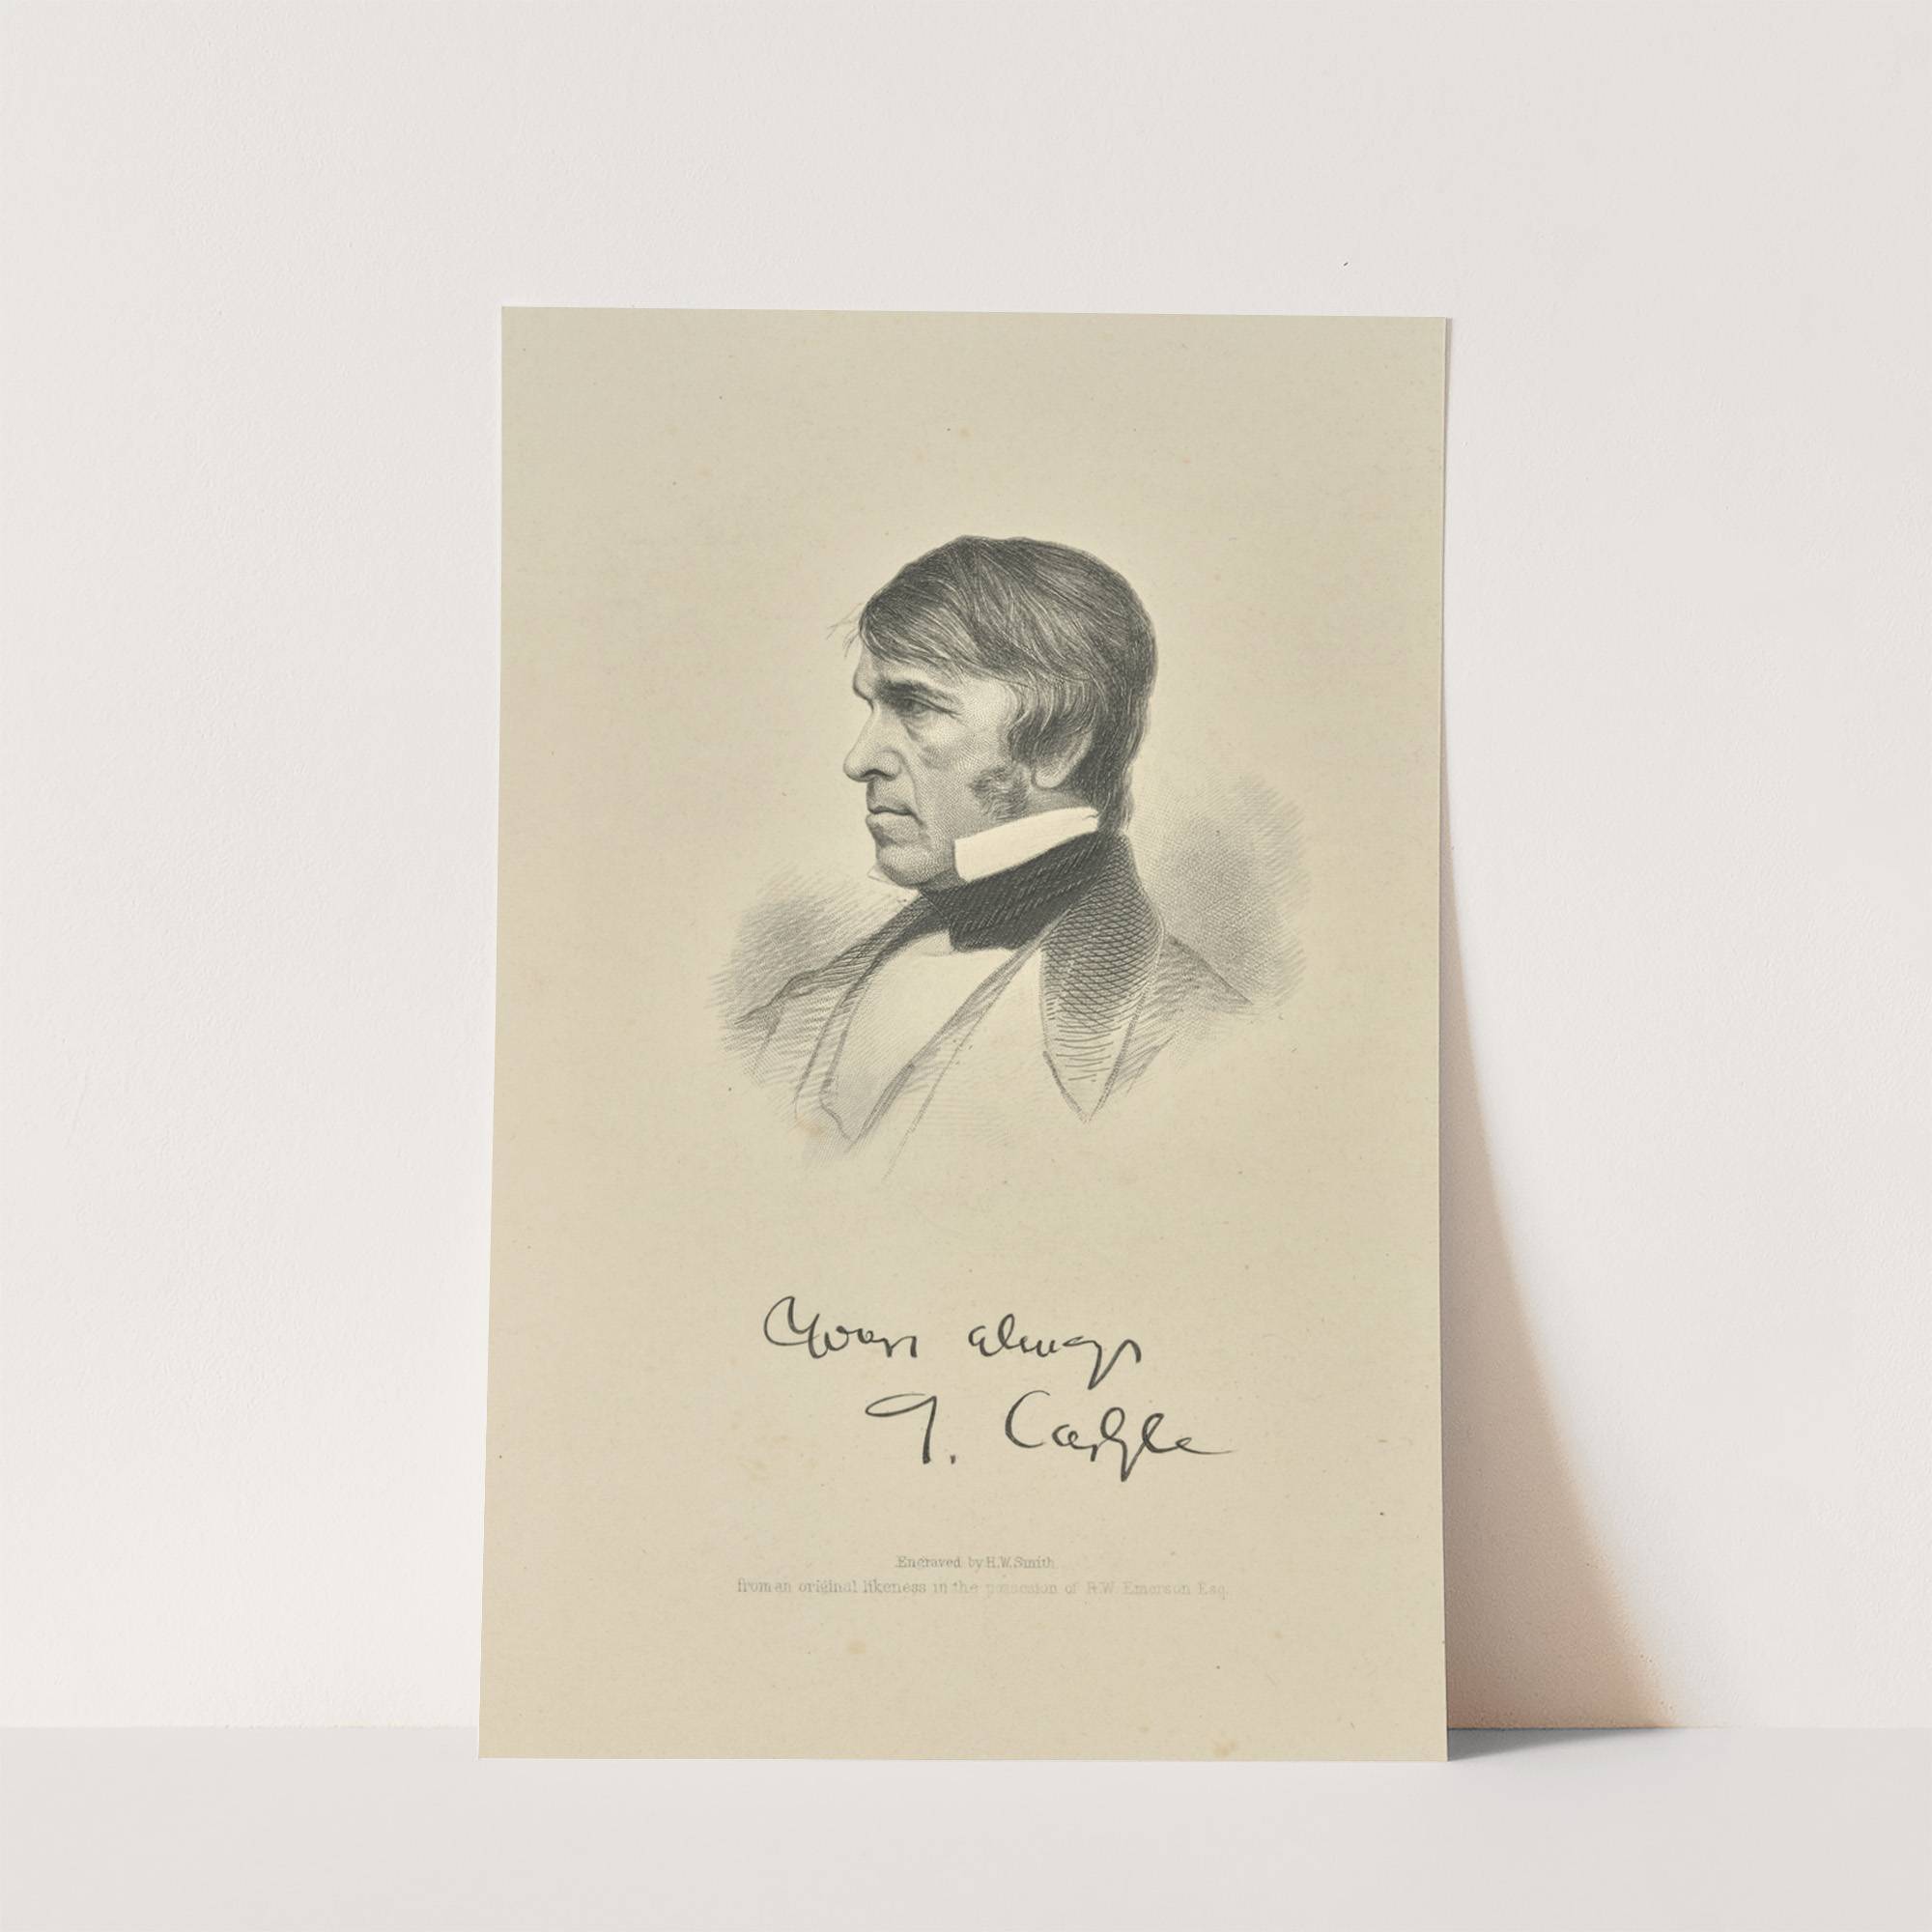 Yours always
T. Carlyle
Engraved by H.W. Smith
from an original likeness in the possession of R.W. Emerson Esq.